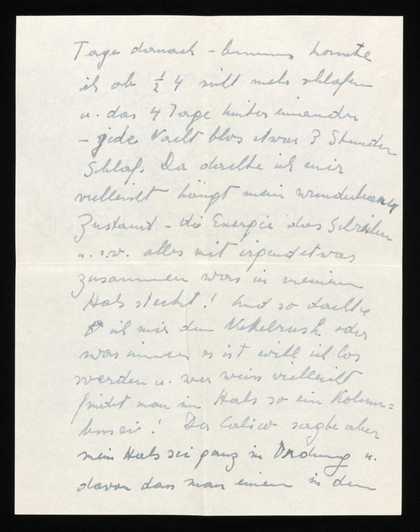 Tage danach – konnte
ich ab ½ 4 nicht mehr schlafen
u. das 4 Tage hintereinander
– jede Nacht blos etwas 3 Stunden
Schlaf. Da dachte ich mir
vielleicht hängt mein wunderbarer
Zustand – die Energie des Schreiben
u.s.w. alles mit irgendetwas
zusammen was in meinem
Hals steckt! Und so dachte
ich mir den oder
was immer es ist will ich los
werden u. wer weiss vielleicht
findet man im Hals so ein Kolum=
busei! Der sagte aber
mein Hals sei ganz in Ordnung u.
davon dass man einem in dem